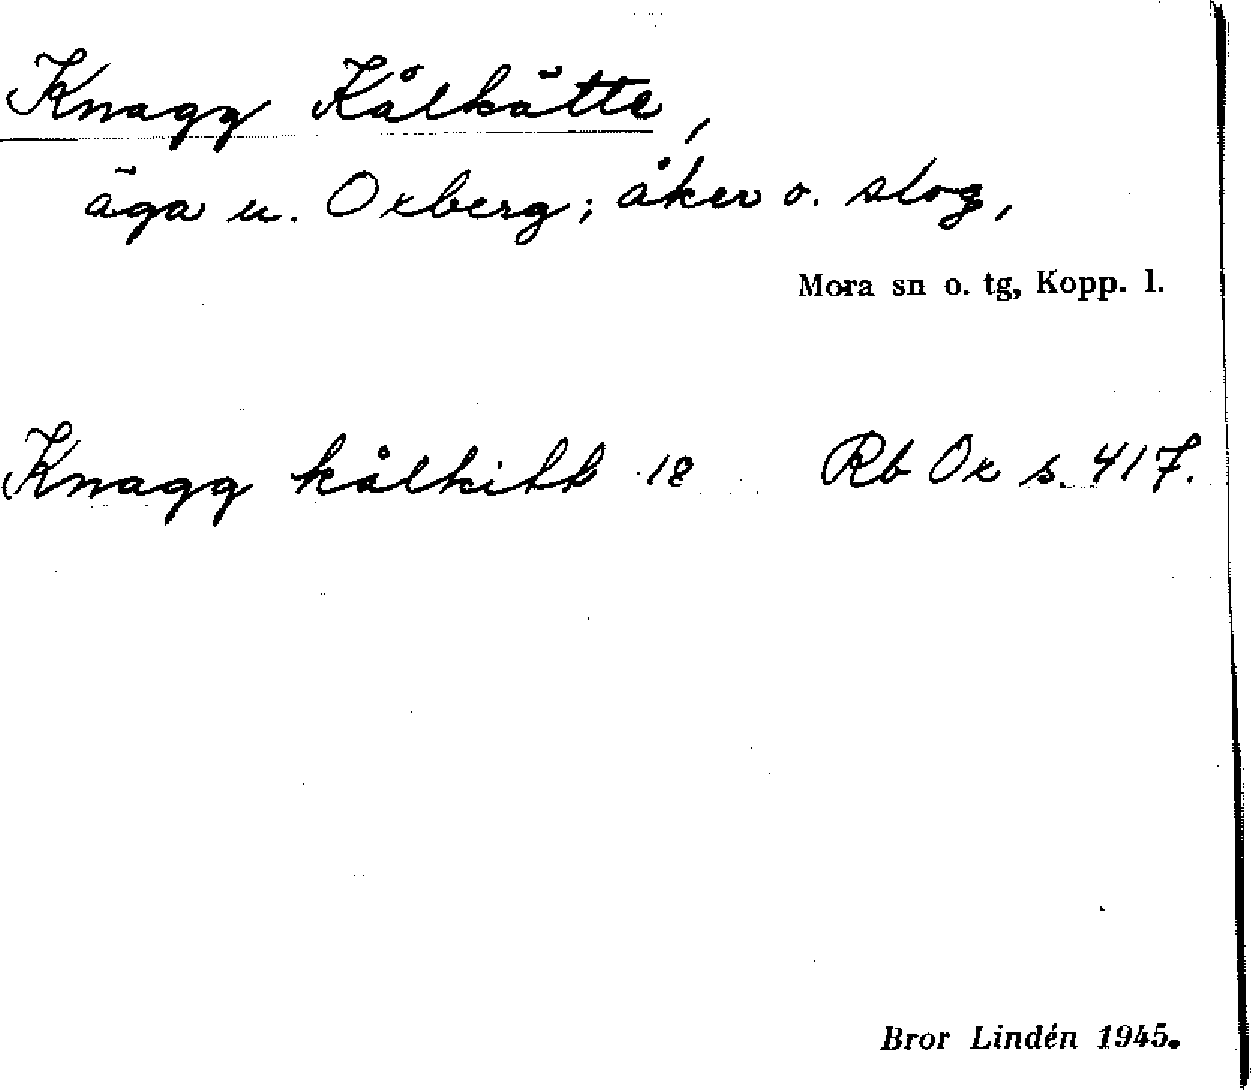 Knagg Kålkätte,
äga u. Oxberg; åker o. slog,
Mora sn o. tg, Kopp. l.
Knagg kålkitt 18 Rb Ox s. 417.
Bror Lindén 1945.